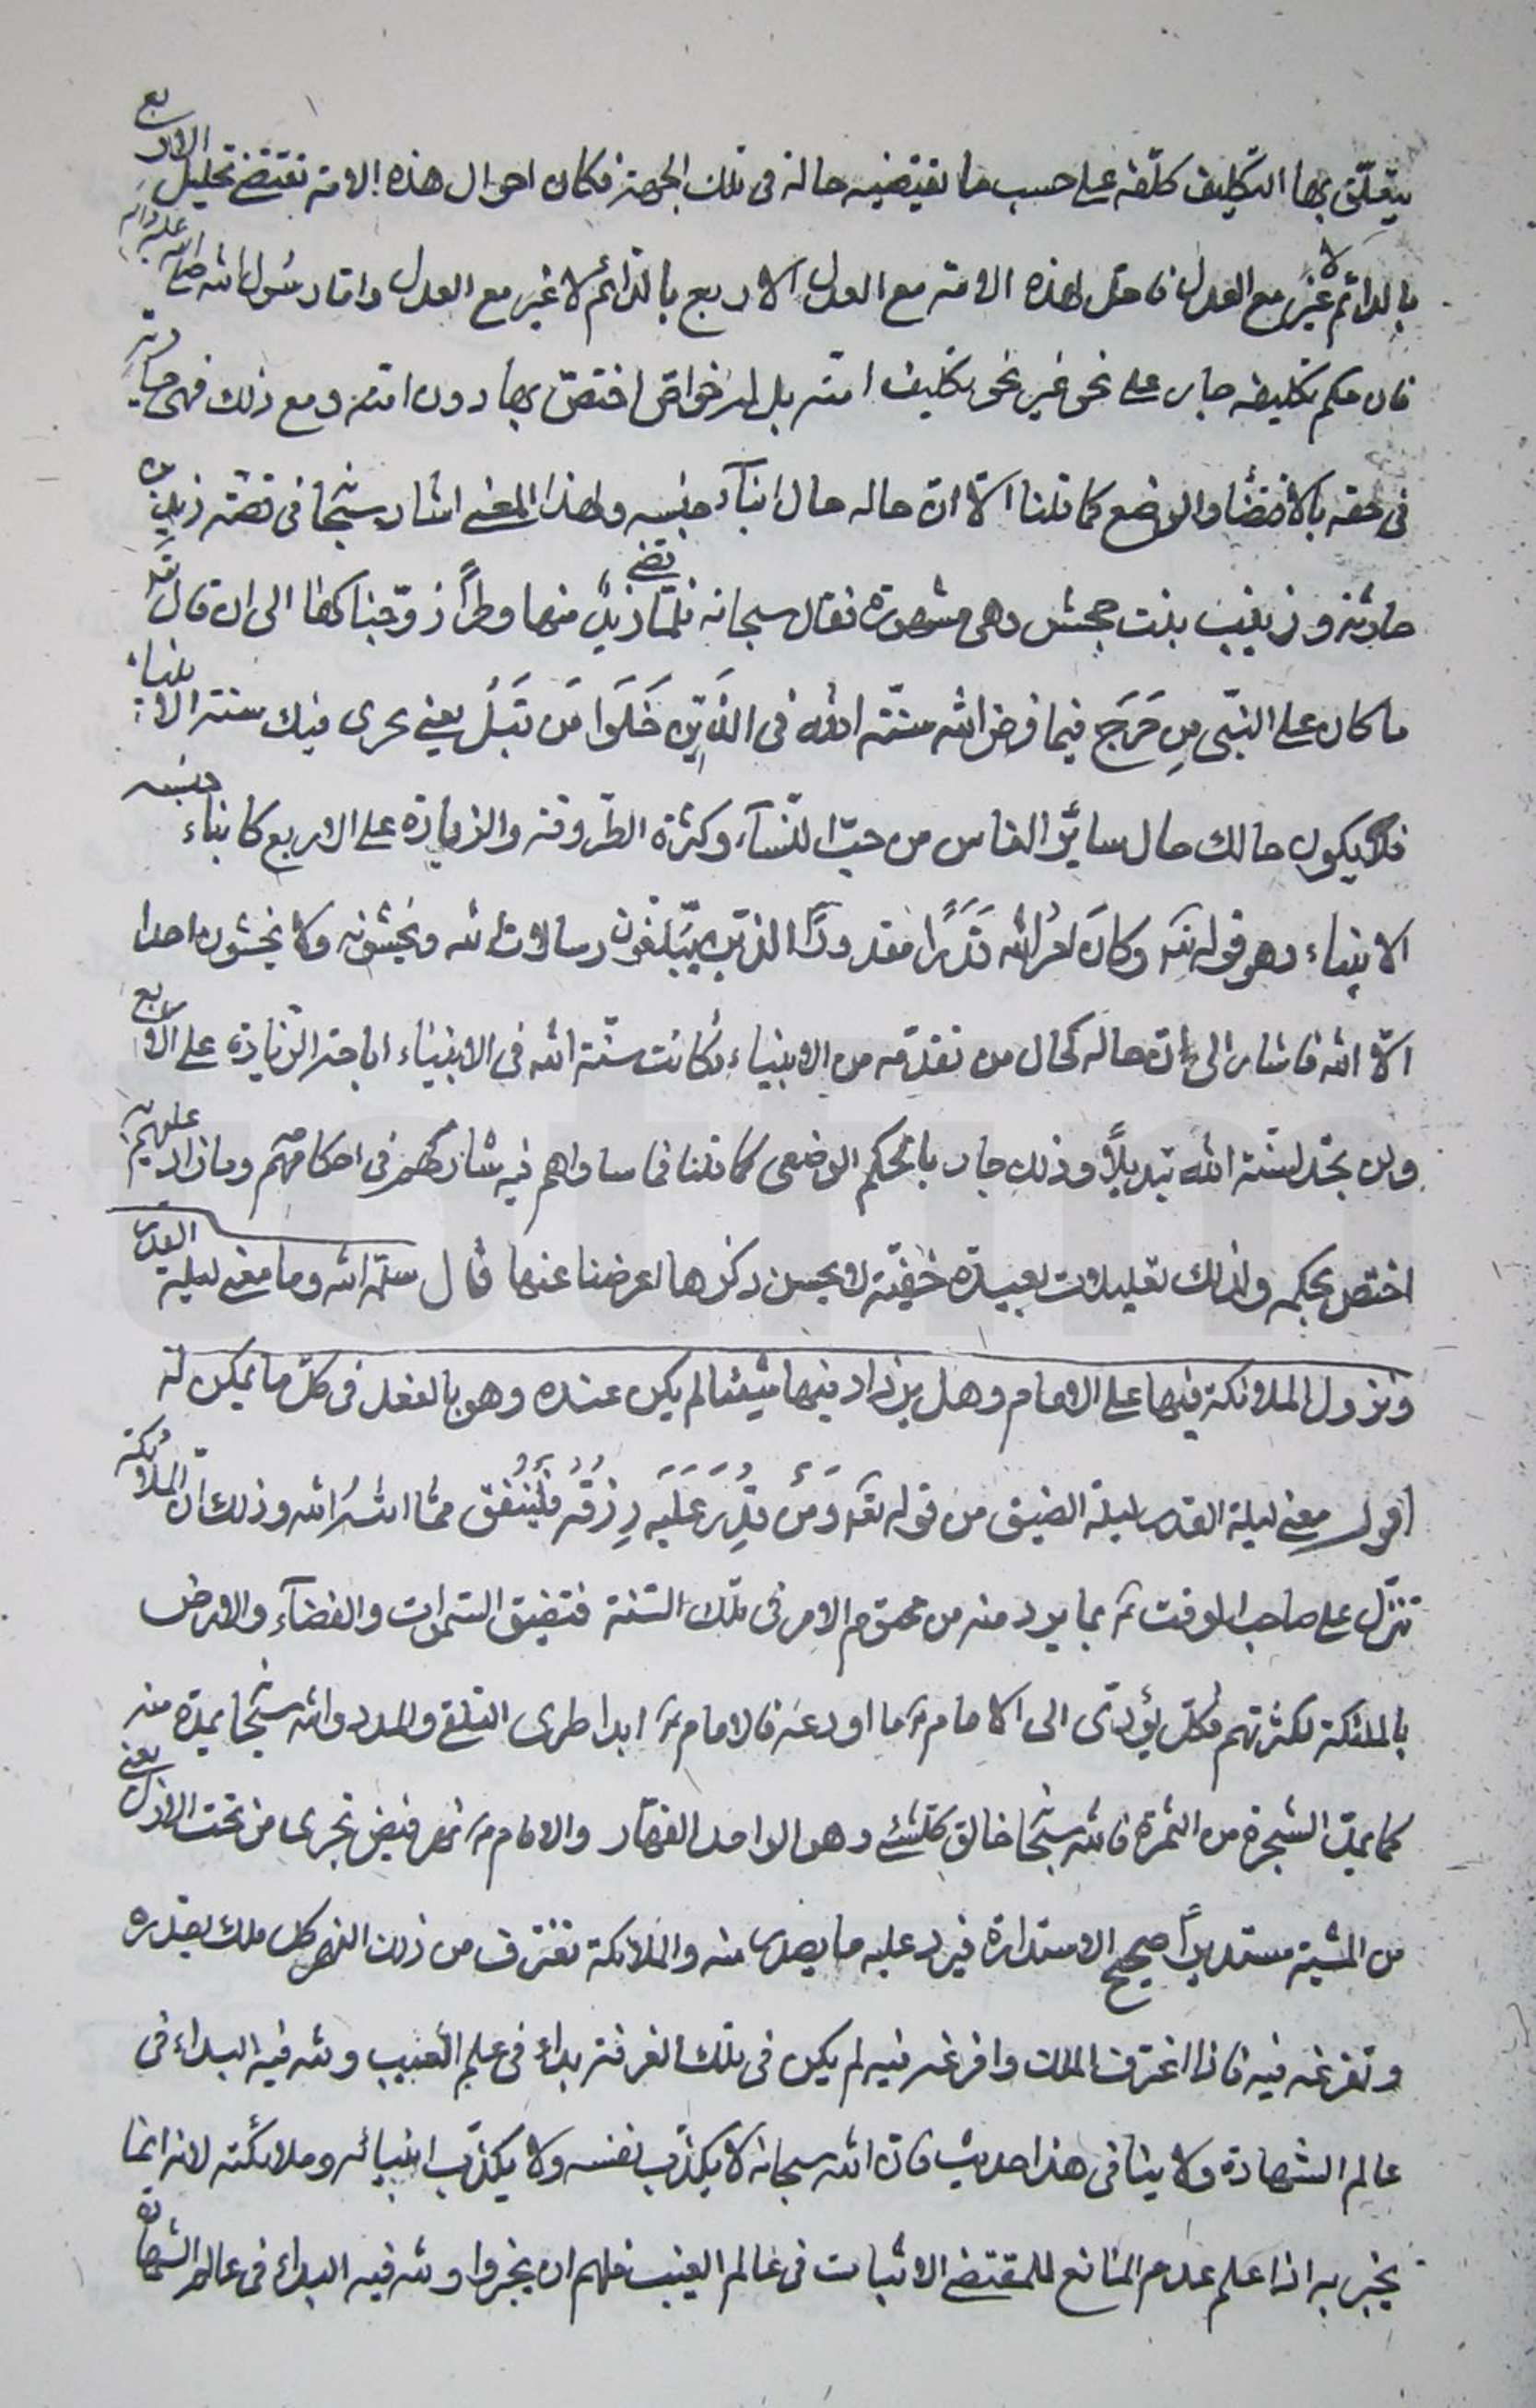 يتعلّق بها التكليف كلّفه على حسب ما تقتضيه حاله فى تلك الجهة فكان احوال هذه الامة تقتضى تحليل الاربع
بالدائم لا غير مع العدل فاحلّ لهذه الامة مع العدل الاربع بالدّائم لا غير مع العدل وامّا رسول الله صلى الله عليه وآله
فان حكم تكليفه جار على نحو غير نحو تكليف امته بل له خواصّ اختصّ بها دون امته ومع ذلك فهى جارية
فى حقه بالاقتضاء والوضع كما قلنا الّا انّ حاله حال ابنآء جنسه ولهذا المعنى اشار سبحانه فى قصّة زيد بن
حارثة وزينب بنت جحش وهى مشهورة فقال سبحانه فلمّا قضى زيدٌ منها وطراً زوّجناكها الى ان قال تعالى
ما كان على النبّى مِن حَرَج فيما فرض الله سنّة الله فى الّذَين خَلَوا مَن قَبَلُ يعنى جرى فيك سنة الانبياء
فلا يكون حالك حال سائر الناس من حبّ النّسآء وكثرة الطّروقة والزيادة على الاربع كابناء جنسه
الانبياء وهو قوله تعالى وكانَ امرُ الله قَدَرًا مقدورًا الذين يبلّغون رسالات الله ويخشونه ولا يخشون احدا
الّا الله فاشار الى انّ حاله كحال من تقدّمه من الانبياء وكانت سنّة الله فى الانبياء اباحة الزيادة على الاربع
ولن تجد لسنّة الله تبديلاً وذلك جار بالحكم الوضعى كما قلنا فما ساواهم فيه شاركهم فى احكامهم وما زاد عليهم
اختص بحكمه ولذلك تعليلات بعيدة خفيّة لا يحسن ذكرها اعرضنا عنها قال سلمه الله وما معنى ليلة القدر
ونزول الملائكة فيها على الامام وهل يزداد فيها شيئا لم يكن عنده وهو بالفعل فى كلّ ما يمكن له
اقول معنى ليلة القدر ليلة الضيق من قوله تعالى وَمَن قُدِرَ عَلَيَه رِزقُه فليُنُفق ممّا اتيهُ الله وذلك انّ الملائكة
تنزّل على صاحب الوقت ع بما يرد منه من محتوم الامر فى تلك السّنة فتضيق السّموات والفضآء والارض
بالملئكة لكثرتهم فكلّ يؤدّى الى الامام ع ما اودعه فالامام ع ابدا طرى التلقى والمدد والله سبحانه يمدّه منه
كما يمدّ الشجرة من الثمرة فالله سبحانه خالق كلّشئ وهو الواحد القهّار والامام ع نهر فيض تجرى من تحت الازل يعنى
من المشيّة مستديراً صحيح الاستدارة فيرد عليه ما يصدر منه والملائكة تغترف من ذلك النهر كل ملك بقدره
وتفرغه فيه فاذا اغترف الملك وافرغه فيه لم يكن فى تلك الغرفة بداء فى علم الغيب ولله فيه البداء فى
عالم الشهادة ولا ينافى هذا حديث فانّ الله سبحانه لا يكذّب نفسه ولا يكذّب انبيائه وملائكته لانه انما
يخبر به اذا علم عدم المانع للمقتضى الاثبات فى عالم الغيب فلهم ان يخبروا ولله فيه البداء فى عالم الشهادة